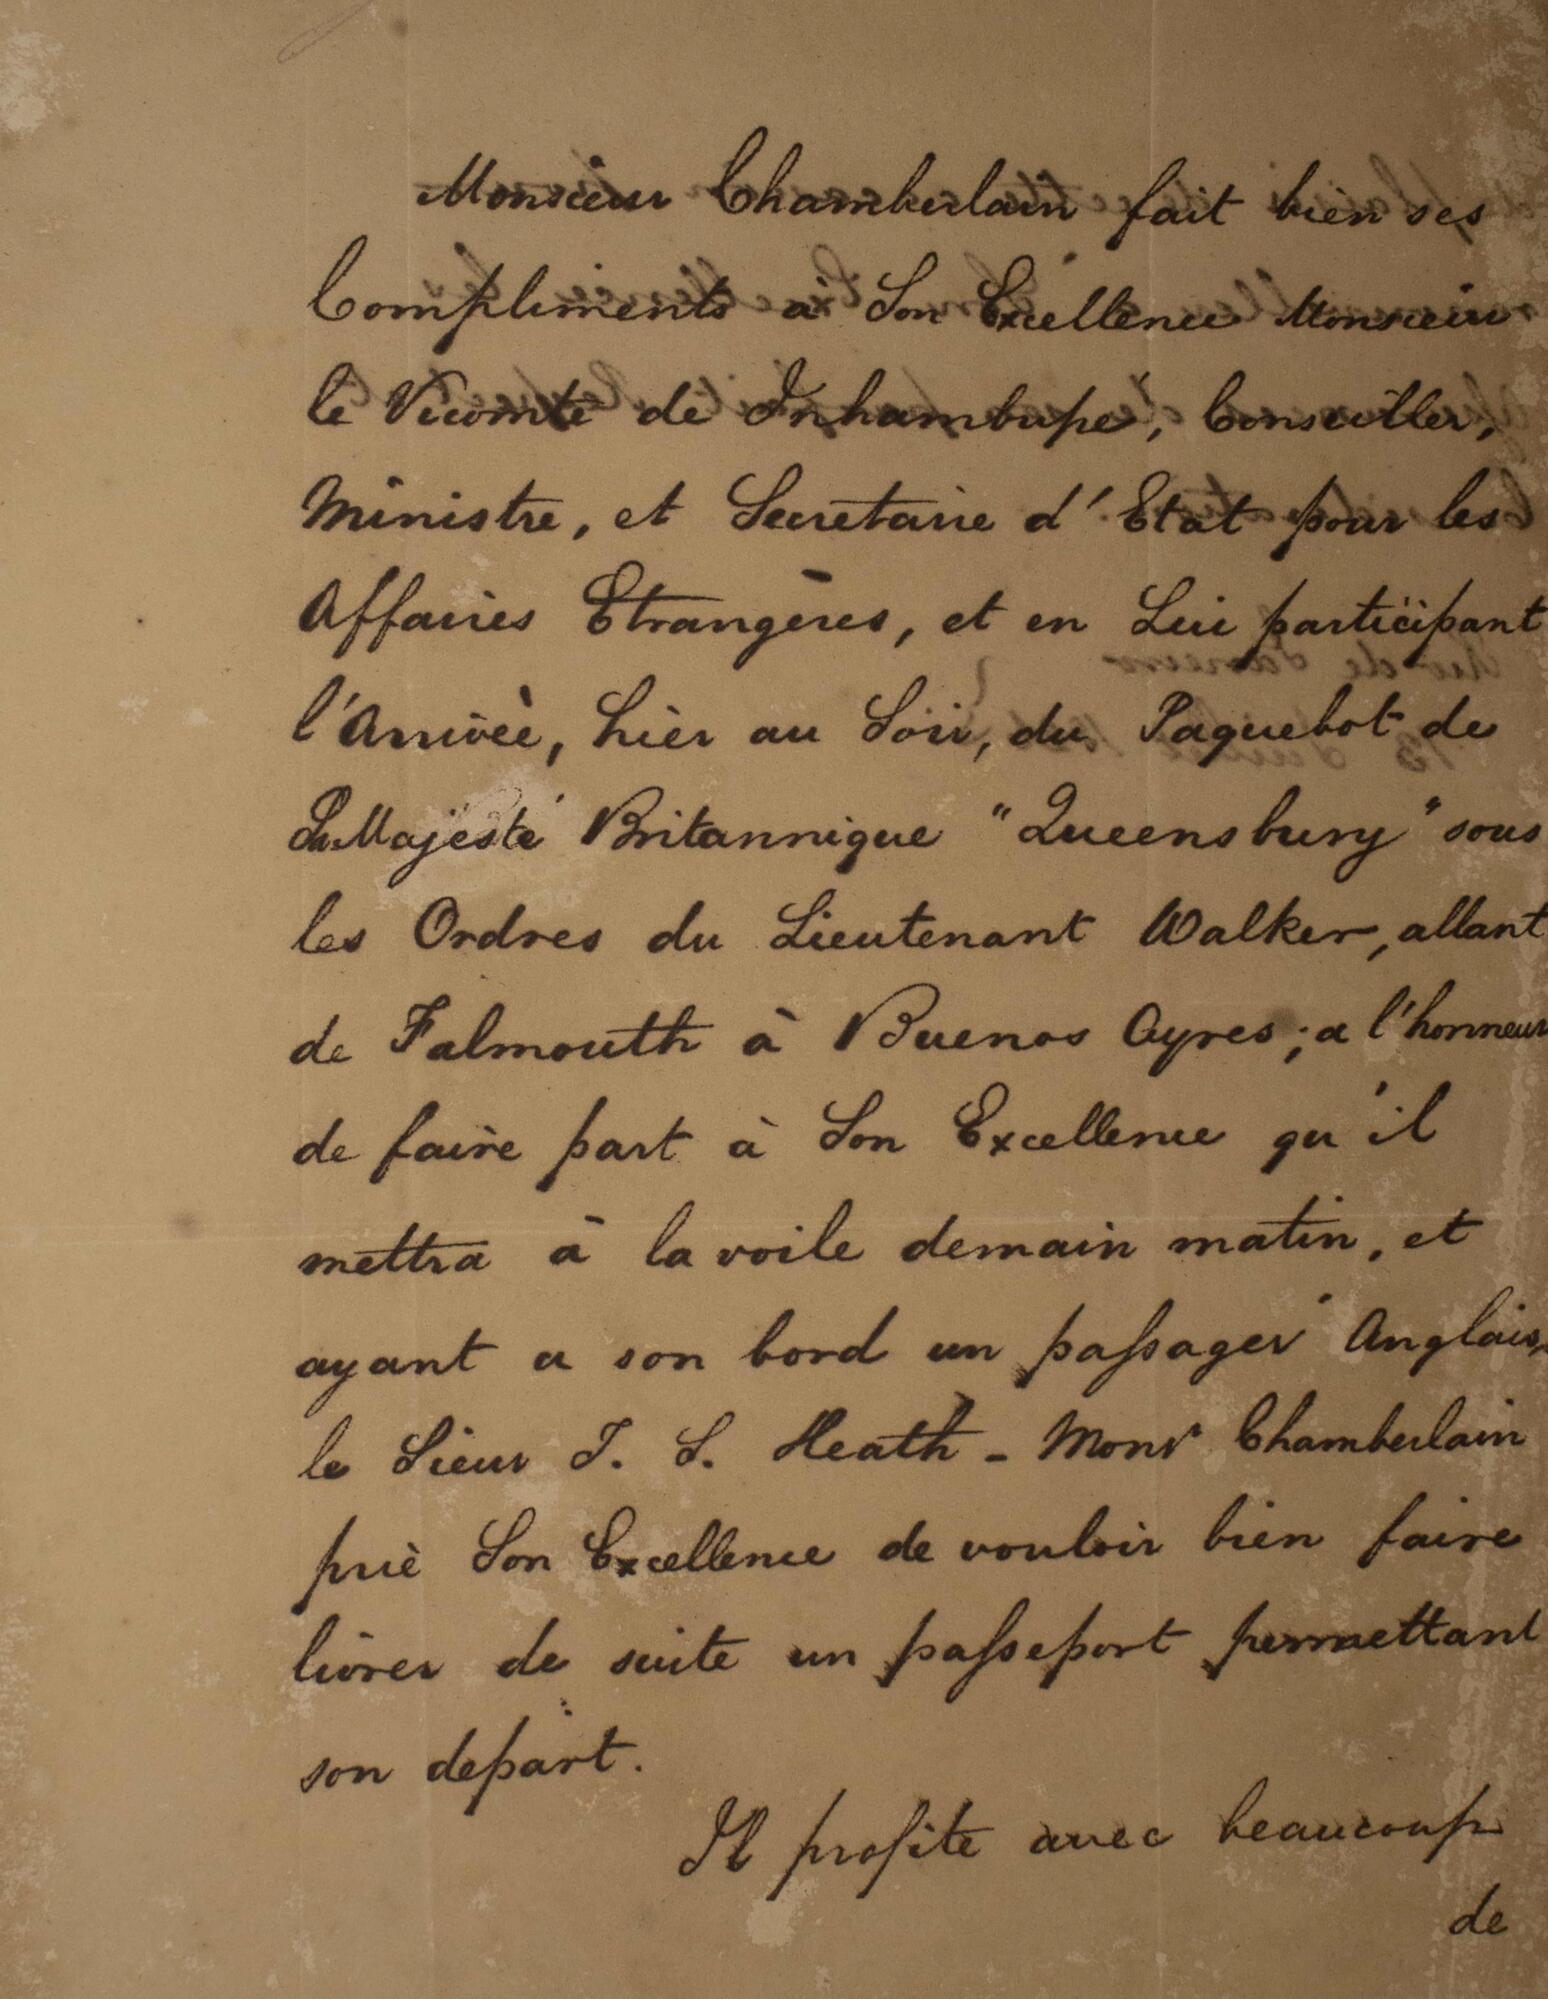 Monsieur Chamberlain fait bien ses
Compliments à Son Excellence Monsieur
le Vicomte de Inhambupé, Conseiller,
Ministre, et Secretaire d'Etat pour les
Affaires Etrangères, et en Lui participant
l'Arrivée, hier au Soir, du Paquebot de
Sa Majesté Britannique "Queensbury" sous
les Ordres du Lieutenant Walker, allant
de Falmouth à Buenos Ayres; a l'honneur
de faire part à Son Excellence qu'il
mettra à la voile demain matin, et
ayant a son bord un passager Anglais,
le Sieur J. S. Heath - Monsr Chamberlain
prie Son Excellence de vouloir bien faire
livrer de suite un passeport permettant
son depart.
Il profite avec beaucoup
de